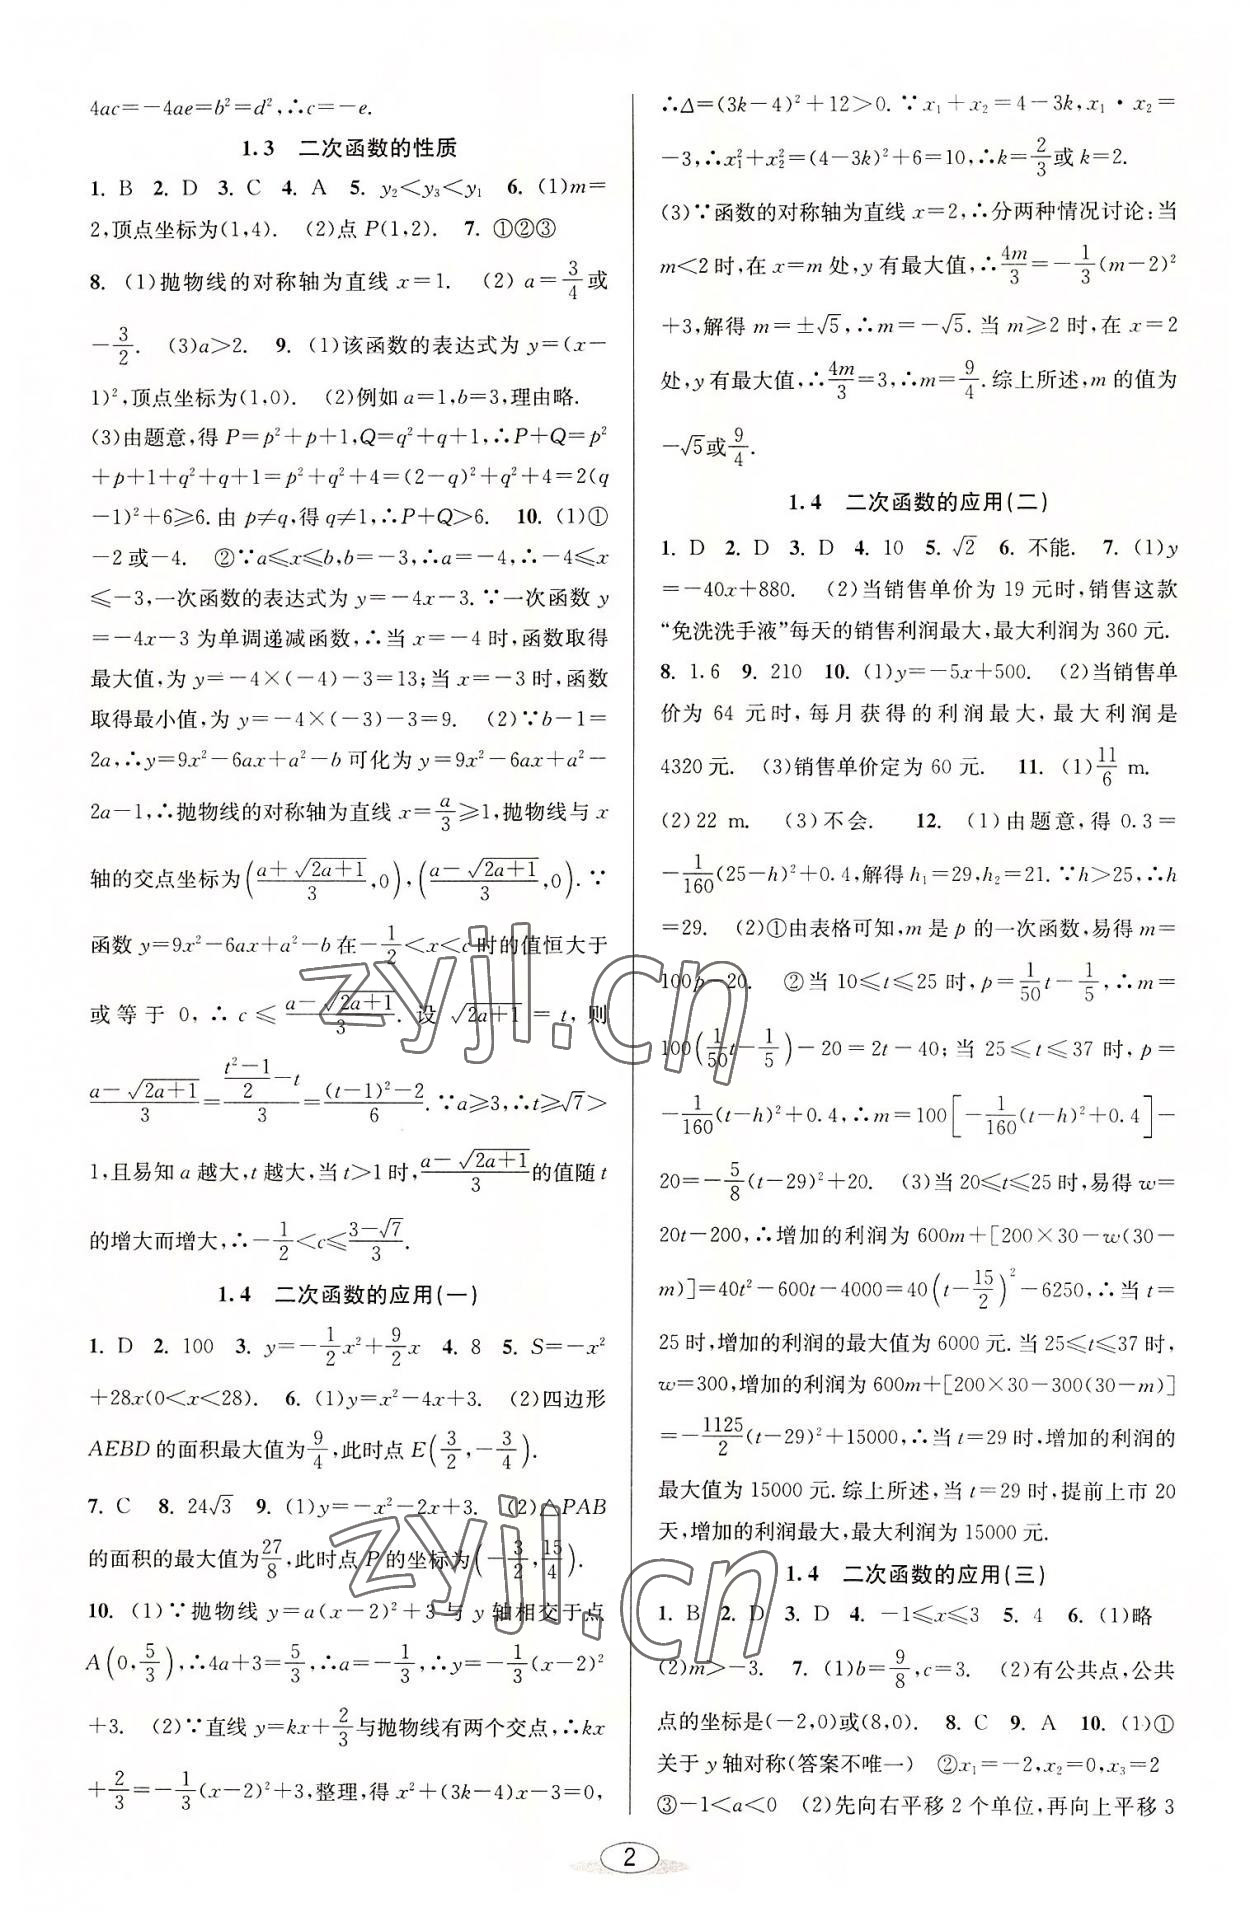 4ac=-4ae=b²=d²,∴c=-e.
1.3 二次函数的性质
1. B 2. D 3. C 4. A 5. y₂<y₃<y₁ 6. (1)m=
2,顶点坐标为(1,4). (2)点 P(1,2). 7. ①②③
8. (1)抛物线的对称轴为直线 x=1. (2) a=3/4或
-3/2. (3)a>2. 9. (1)该函数的表达式为 y=(x-
1)²,顶点坐标为(1,0). (2)例如 a=1,b=3,理由略.
(3)由题意,得 P=p²+p+1,Q=q²+q+1,∴P+Q=p²
+p+1+q²+q+1=p²+q²+4=(2-q)²+q²+4=2(q
-1)²+6⩾6.由 p≠q,得 q≠1,∴P+Q>6. 10. (1)①
-2或-4. ②∵a⩽x⩽b,b=-3,∴a=-4,∴-4⩽x
⩽-3,一次函数的表达式为 y=-4x-3.∵一次函数 y
=-4x-3 为单调递减函数,∴当 x=-4 时,函数取得
最大值,为 y=-4×(-4)-3=13;当 x=-3 时,函数
取得最小值,为 y=-4×(-3)-3=9. (2)∵b-1=
2a,∴y=9x²-6ax+a²-b 可化为 y=9x²-6ax+a²-
2a-1,∴抛物线的对称轴为直线 x=a/3⩾1,抛物线与 x
轴的交点坐标为((a+√(2a+1))/3,0),((a-√(2a+1))/3,0).∵
函数 y=9x²-6ax+a²-b 在-1/2<x<c 时的值恒大于
或等于 0,∴c⩽(a-√(2a+1))/3.设 √(2a+1)=t,则
(a-√(2a+1))/3=((t²-1)/2-t)/3=((t-1)²-2)/6.∵a⩾3,∴t⩾√7>
1,且易知 a 越大,t 越大,当 t>1 时,(a-√(2a+1))/3的值随 t
的增大而增大,∴-1/2<c⩽(3-√7)/3.
1.4 二次函数的应用(一)
1. D 2. 100 3. y=-1/2x²+9/2x 4. 8 5. S=-x²
+28x(0<x<28). 6. (1)y=x²-4x+3. (2)四边形
AEBD 的面积最大值为9/4,此时点 E(3/2,-3/4).
7. C 8. 24√3 9. (1)y=-x²-2x+3. (2)△PAB
的面积的最大值为27/8,此时点 P 的坐标为(-3/2,15/4).
10. (1)∵抛物线 y=a(x-2)²+3 与 y 轴相交于点
A(0,5/3),∴4a+3=5/3,∴a=-1/3,∴y=-1/3(x-2)²
+3. (2)∵直线 y=kx+2/3与抛物线有两个交点,∴kx
+2/3=-1/3(x-2)²+3,整理,得 x²+(3k-4)x-3=0,
∴Δ=(3k-4)²+12>0.∵x₁+x₂=4-3k,x₁·x₂=
-3,∴x₁²+x₂²=(4-3k)²+6=10,∴k=2/3或 k=2.
(3)∵函数的对称轴为直线 x=2,∴分两种情况讨论:当
m<2 时,在 x=m 处,y 有最大值,∴4m/3=-1/3(m-2)²
+3,解得 m=±√5,∴m=-√5.当 m⩾2 时,在 x=2
处,y 有最大值,∴4m/3=3,∴m=9/4.综上所述,m 的值为
-√5或9/4.
1.4 二次函数的应用(二)
1. D 2. D 3. D 4. 10 5. √2 6. 不能. 7. (1)y
=-40x+880. (2)当销售单价为 19 元时,销售这款
“免洗洗手液”每天的销售利润最大,最大利润为 360 元.
8. 1.6 9. 210 10. (1)y=-5x+500. (2)当销售单
价为 64 元时,每月获得的利润最大,最大利润是
4320 元. (3)销售单价定为 60 元. 11. (1)11/6 m.
(2)22 m. (3)不会. 12. (1)由题意,得 0.3=
-1/160(25-h)²+0.4,解得 h₁=29,h₂=21.∵h>25,∴h
=29. (2)①由表格可知,m 是 p 的一次函数,易得 m=
100p-20. ②当 10⩽t⩽25 时,p=1/50t-1/5,∴m=
100(1/50t-1/5)-20=2t-40;当 25⩽t⩽37 时,p=
-1/160(t-h)²+0.4,∴m=100[-1/160(t-h)²+0.4]-
20=-5/8(t-29)²+20. (3)当 20⩽t⩽25 时,易得 w=
20t-200,∴增加的利润为 600m+[200×30-w(30-
m)]=40t²-600t-4000=40(t-15/2)²-6250,∴当 t=
25 时,增加的利润的最大值为 6000 元.当 25⩽t⩽37 时,
w=300,增加的利润为 600m+[200×30-300(30-m)]
=-1125/2(t-29)²+15000,∴当 t=29 时,增加的利润的
最大值为 15000 元.综上所述,当 t=29 时,提前上市 20
天,增加的利润最大,最大利润为 15000 元.
1.4 二次函数的应用(三)
1. B 2. D 3. D 4. -1⩽x⩽3 5. 4 6. (1)略
(2)m>-3. 7. (1)b=9/8,c=3. (2)有公共点,公共
点的坐标是(-2,0)或(8,0). 8. C 9. A 10. (1)①
关于 y 轴对称(答案不唯一) ②x₁=-2,x₂=0,x₃=2
③-1<a<0 (2)先向右平移 2 个单位,再向上平移 3
2
zyjl.cn
zyjl.cn